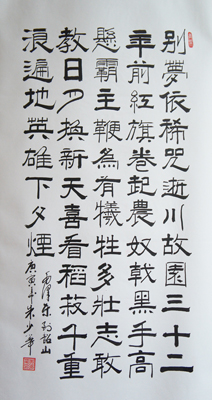 別夢依稀咒逝川故園三十二
年前紅旗卷起農奴戟黑手高
懸霸主鞭為有犧牲多壯志敢
教日月換新天喜看稻菽千重
浪遍地英雄下夕煙
毛澤東到韶山
庚寅年朱少華